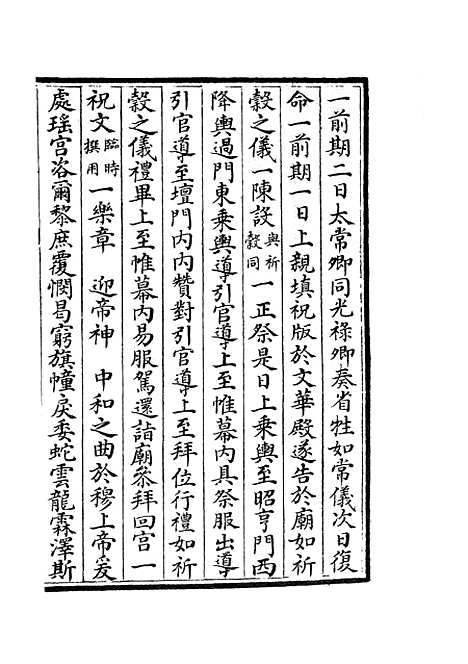 一前期二日太常卿同光祿卿奏省牲如常儀次日復
命一前期一日上親填祝版於文華殿遂告於廟如祈
穀之儀一陳設與祈穀同一正祭是日上乘輿至昭亨門西
降輿過門東乘輿導引官導上至帷幕內具祭服出導
引官導至壇門內內贊對引官導上至拜位行禮如祈
穀之儀禮畢上至帷幕內易服駕還詣廟叅拜回宮一
祝文臨時撰用一樂章　迎帝神　中和之曲於穆上帝爰
處瑤宮咨爾黎庶覆憫曷窮旗幢戾委蛇雲龍霖澤斯